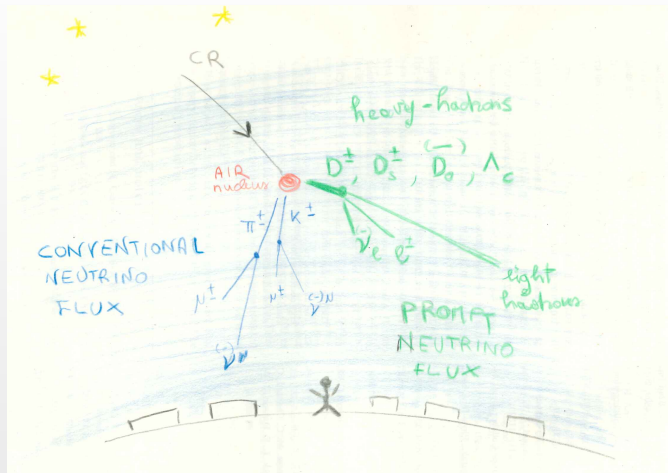 CR
heavy-hadrons
D±, D±s, (—)D0, Λc
AIR
nucleus
π± K±
ν̄e e±
CONVENTIONAL
NEUTRINO
FLUX
μ± μ± (-)νμ
light
hadrons
(-)νμ
PROMPT
NEUTRINO
FLUX